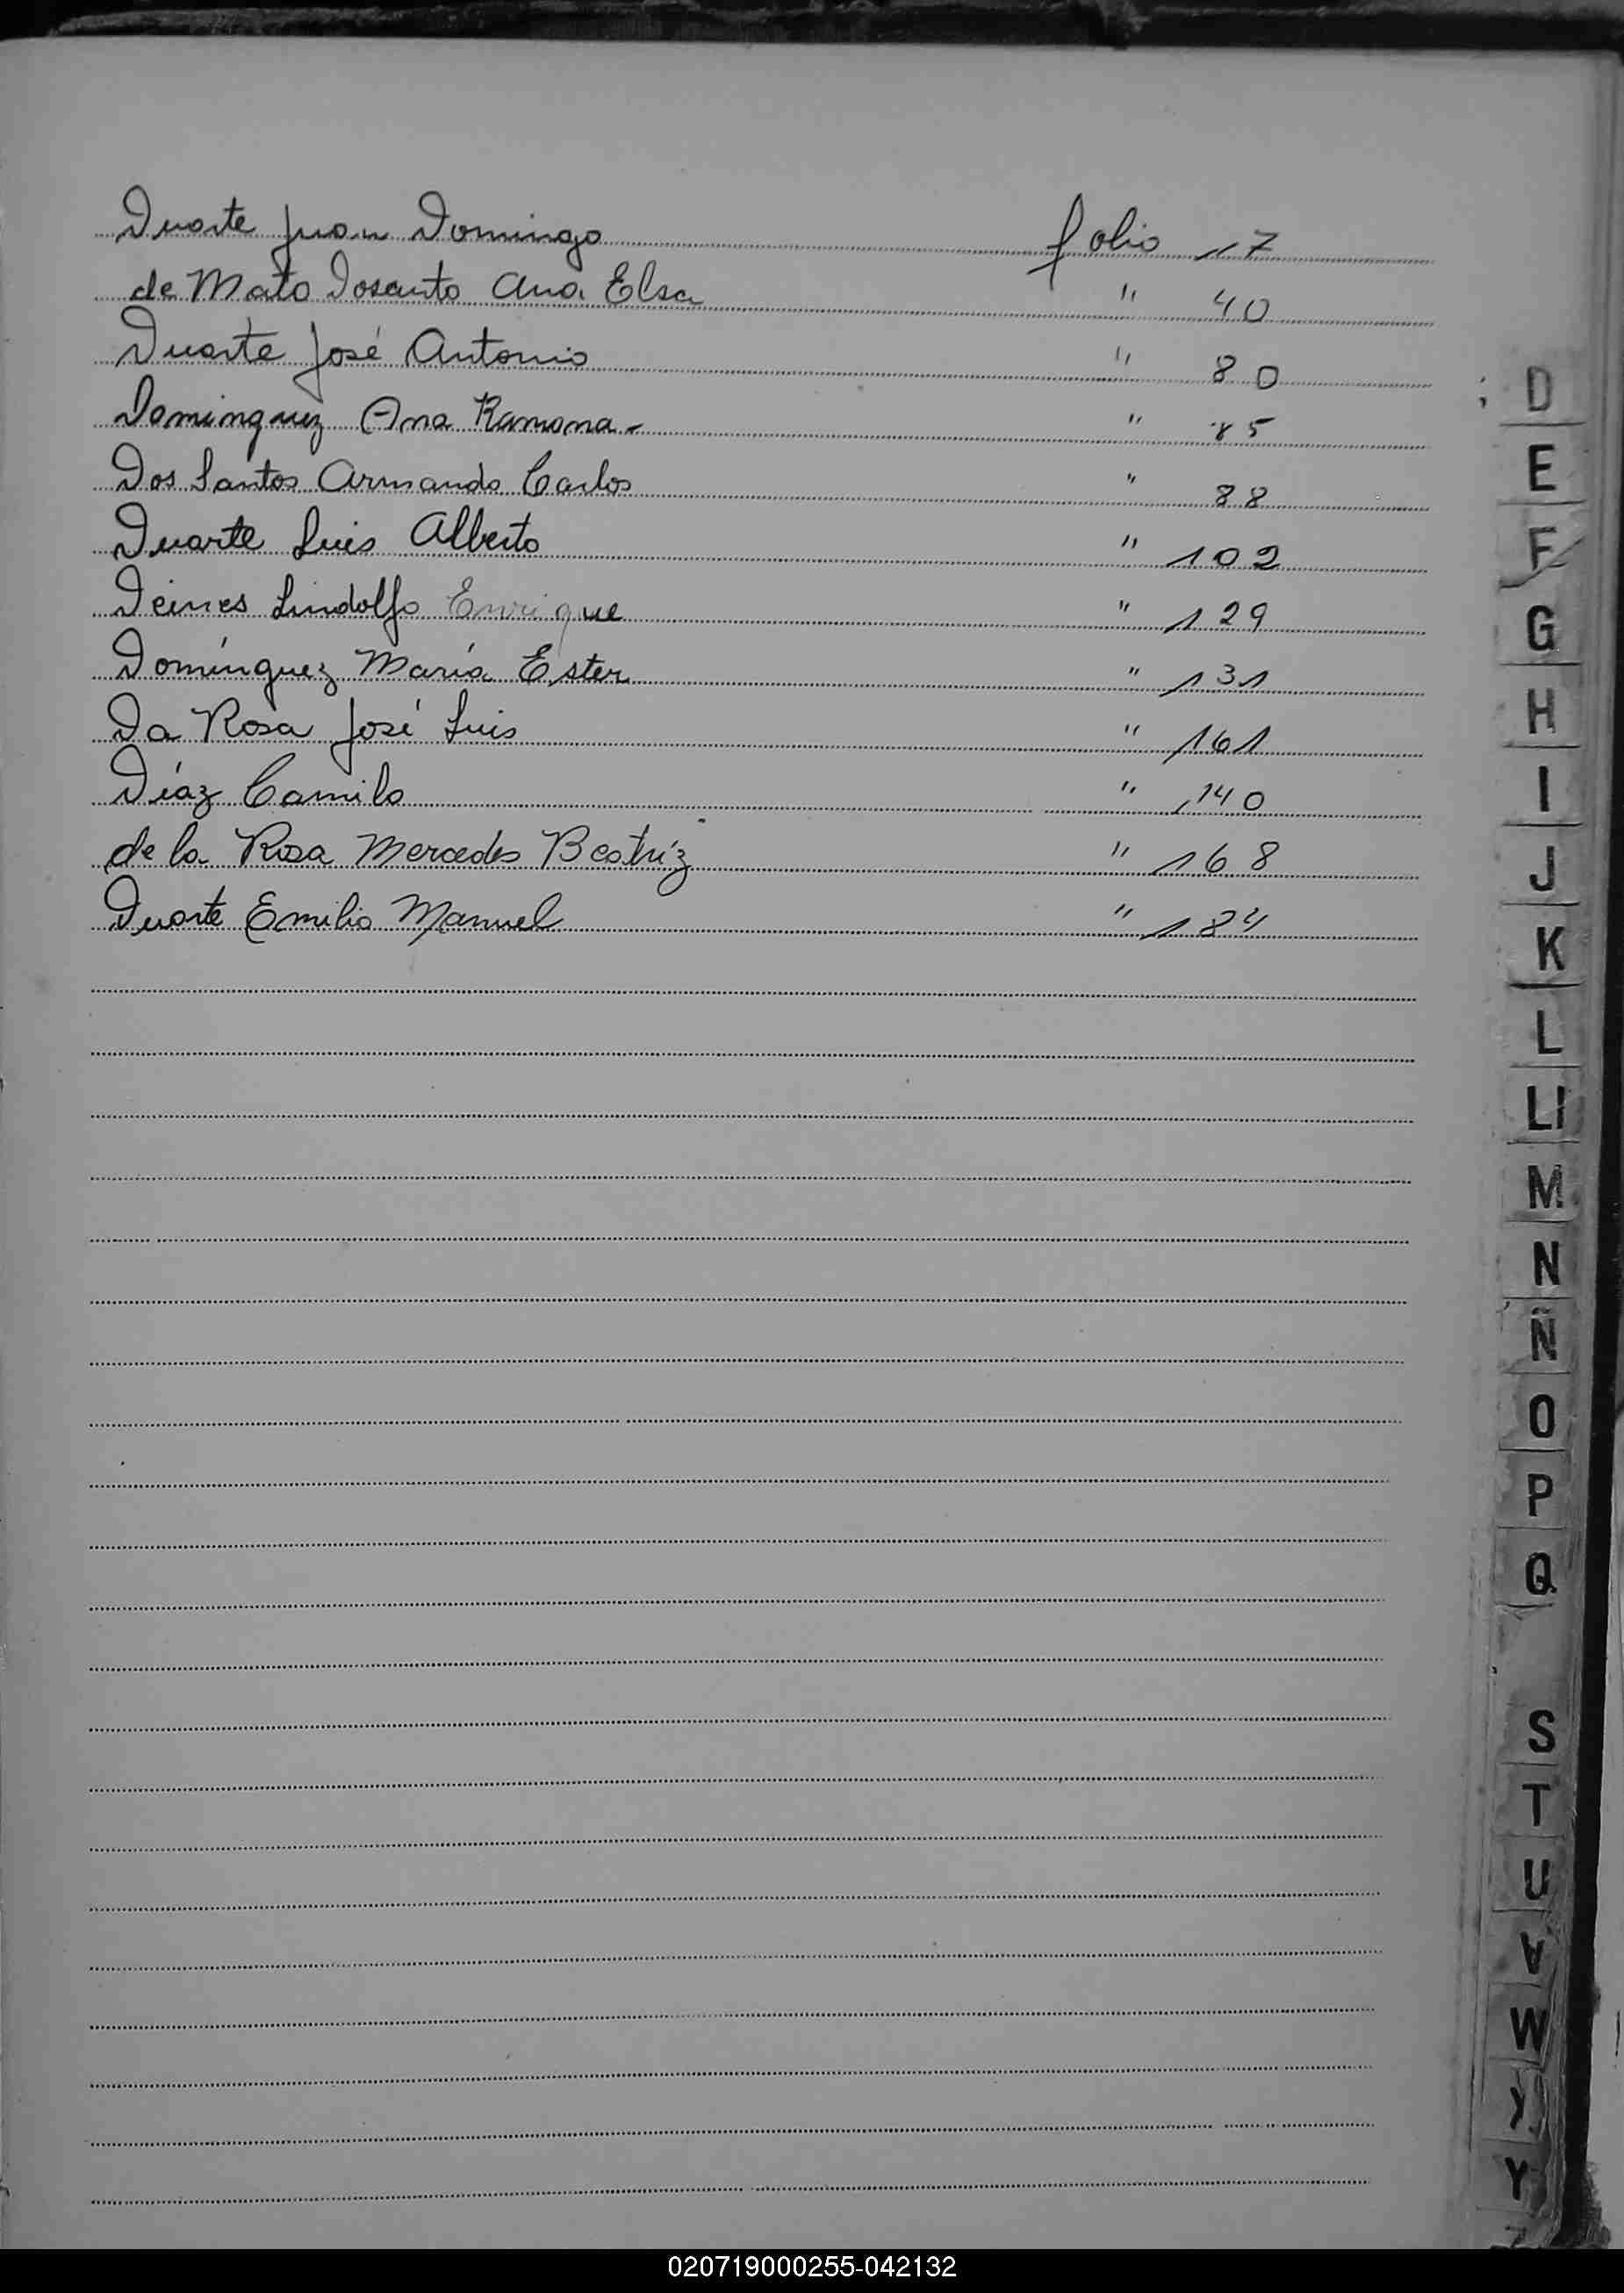 Duarte Juan Domingo folio 17
de Mato Dosanto Ana Elsa " 40
Duarte José Antonio " 80
Dominguez Ana Ramona - " 85
Dos Santos Armando Carlos " 88
Duarte Luis Alberto " 102
Deines Lindolfo Enrique " 129
Domínguez María Ester " 131
Da Rosa José Luis " 161
Díaz Camilo " 140
de la Rosa Mercedes Beatríz " 168
Duarte Emilio Manuel " 184
D
E
F
G
H
I
J
K
L
Ll
M
N
Ñ
O
P
Q
S
T
U
V
W
Y
020719000255-042132